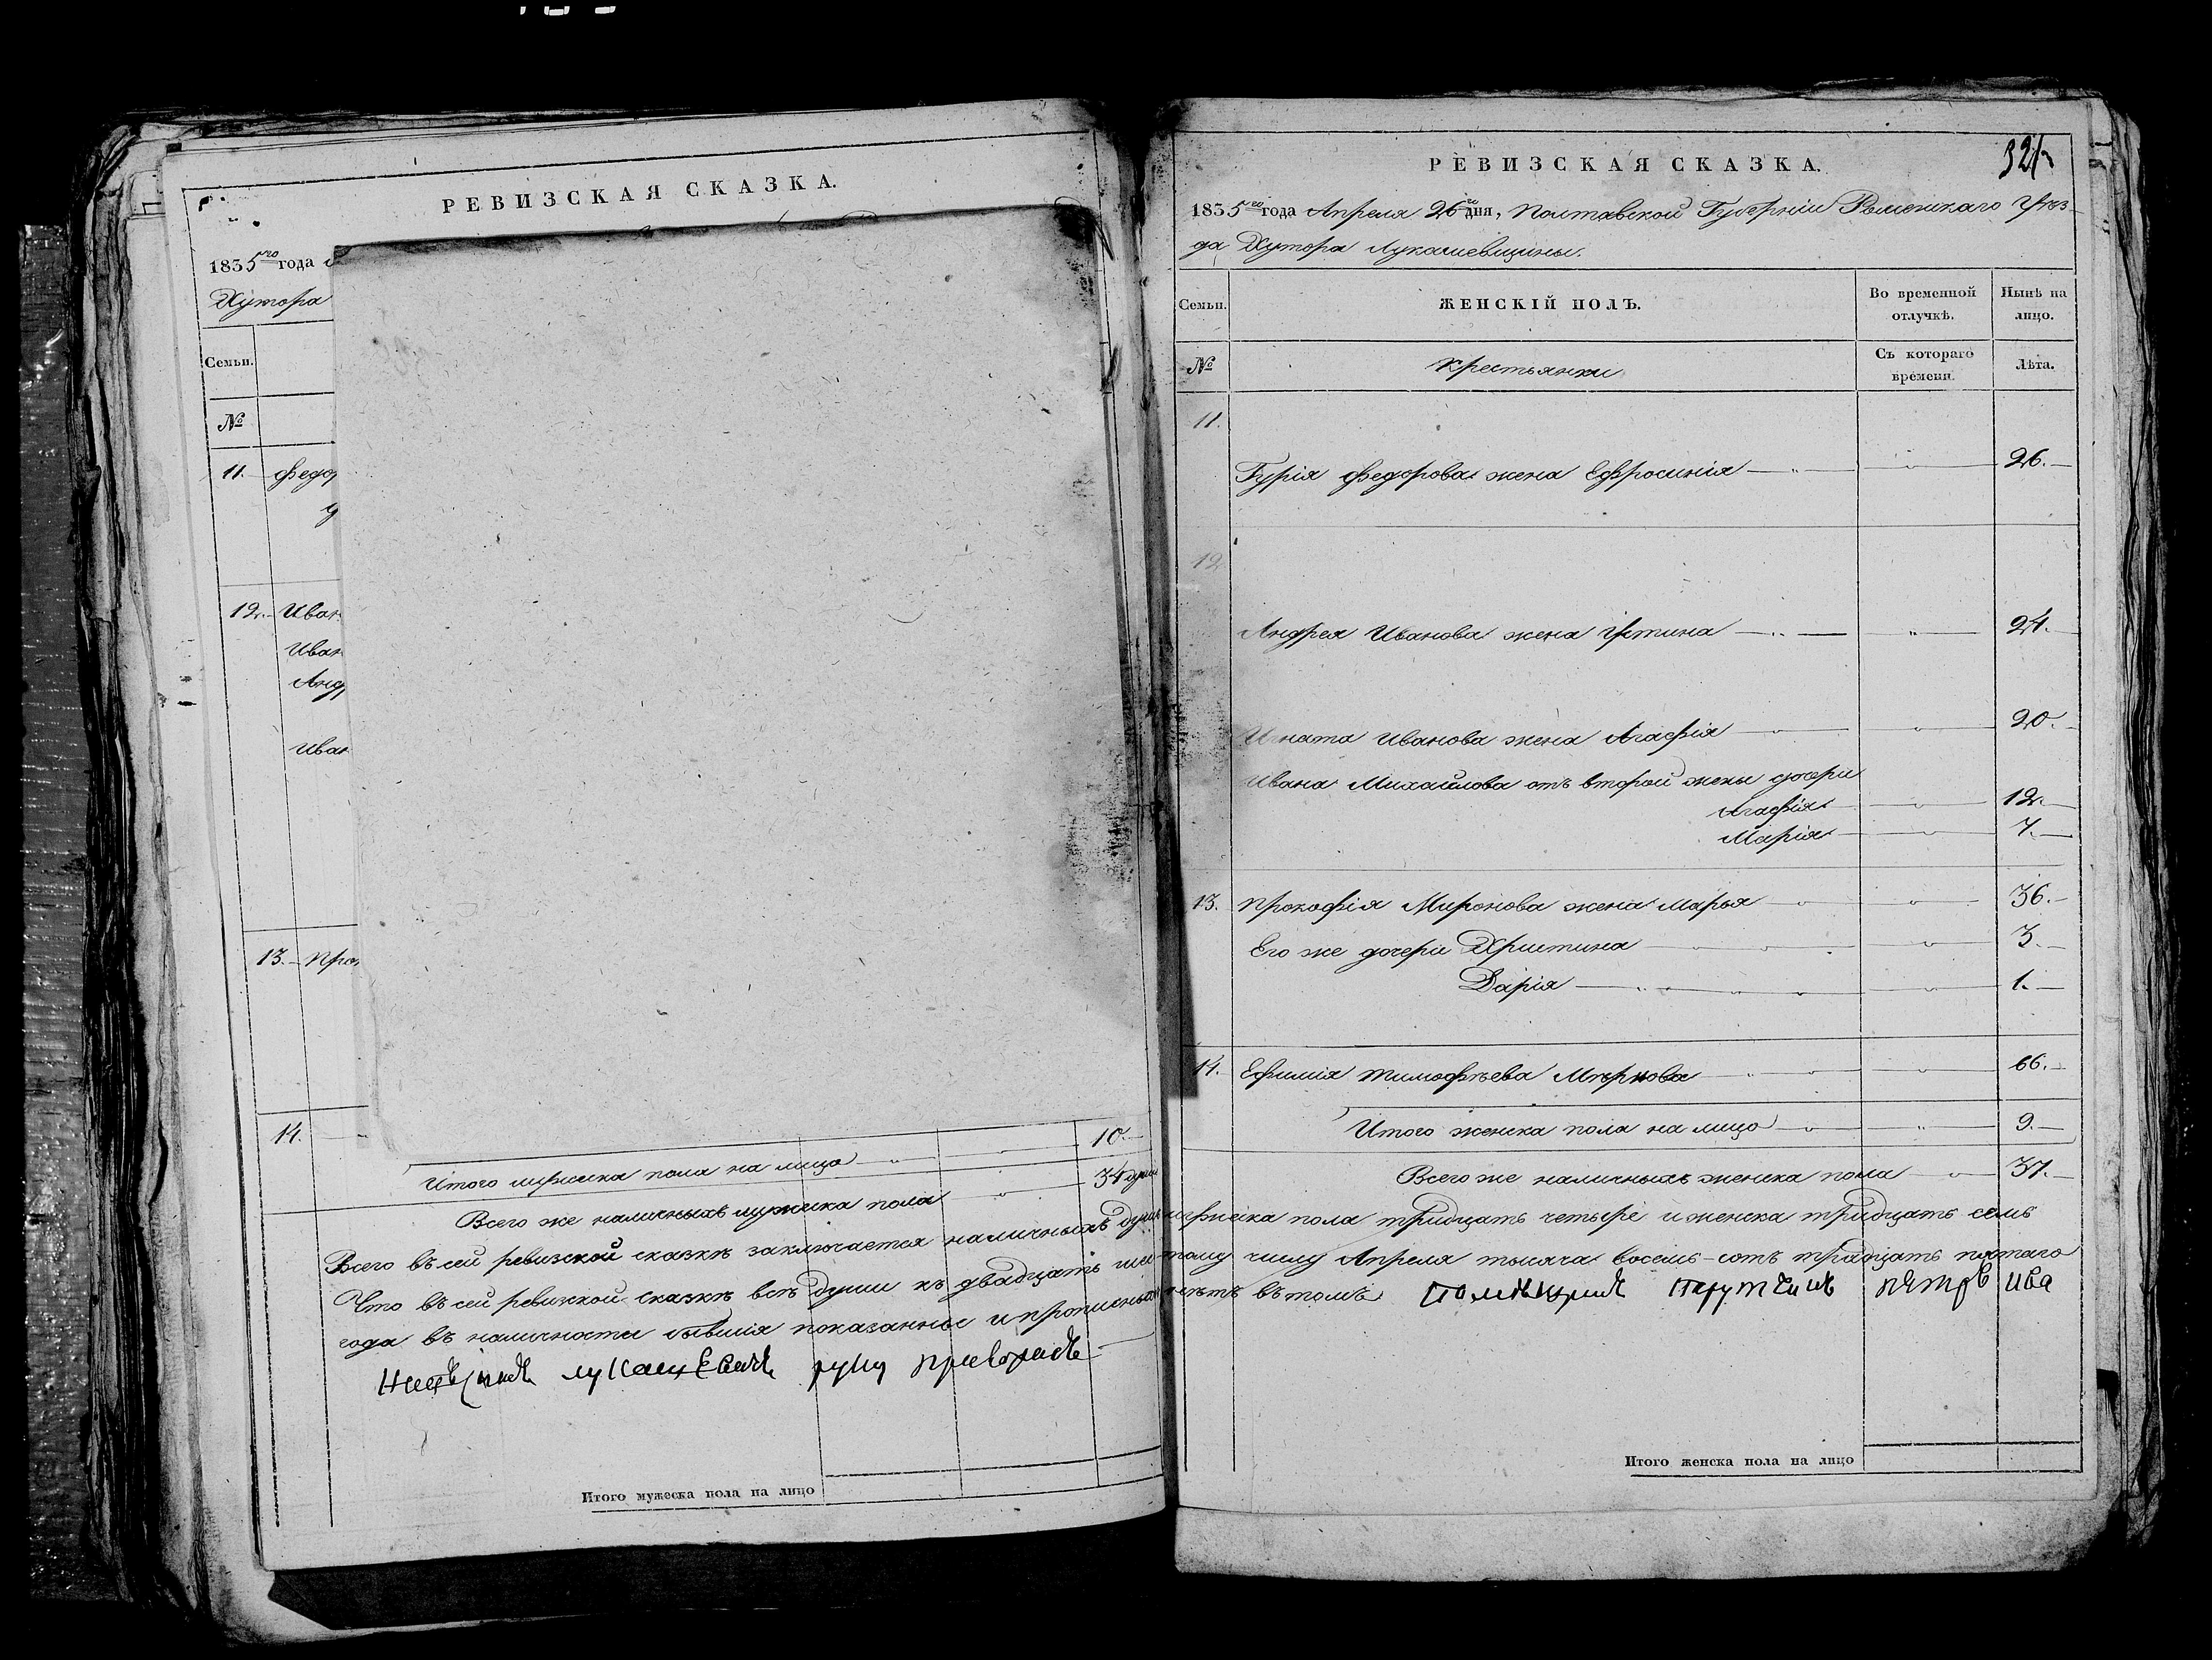 РЕВИЗСКАЯ СКАЗКА.
1835го года
Хутора
Семьи.
№
11. Федо
12. Иван
Иван
Анд
Иван
13. Про
14.
10.
Итого мужеска пола на лицо 34 души
Всего же наличныхъ мужеска пола
Всего въ сей ревизской сказкѣ заключается наличныхъ душъ
Что въ сей ревизской сказкѣ всѣ души къ двадцать шес
года въ наличности бывшія показанные и прописныхъ
Лукашевичъ руку приложилъ
Итого мужеска пола на лицо
РЕВИЗСКАЯ СКАЗКА.
321
1835го года Апреля 26го дня, Полтавской Губерніи Роменскаго Уѣз
да Хутора Лукашевщины.
Семьи. ЖЕНСКІЙ ПОЛЪ. Во временной отлучкѣ. Нынѣ на лицо.
№ Крестьянки Съ котораго времени. Лѣта.
11.
Гурія Федорова жена Ефросинія 26.
12.
Андрея Иванова жена Устина 24.
Игната Иванова жена Агафія 20.
Ивана Михайлова отъ второй жены дочери
Агафія 12.
Марія 7.
13. Прокофія Миронова жена Марья 36.
Его же дочери Христина 3.
Дарія 1.
14. Ефимія Тимофѣева 66.
Итого женска пола на лицо 9.
Всего же наличныхъ женска пола 37.
мужеска пола тридцать четыре и женска тридцать семь
тому числу Апреля тысяча восемь-сотъ тридцать пятаго
нѣтъ въ томъ Помѣщикъ Петръ Ива
Итого женска пола на лицо